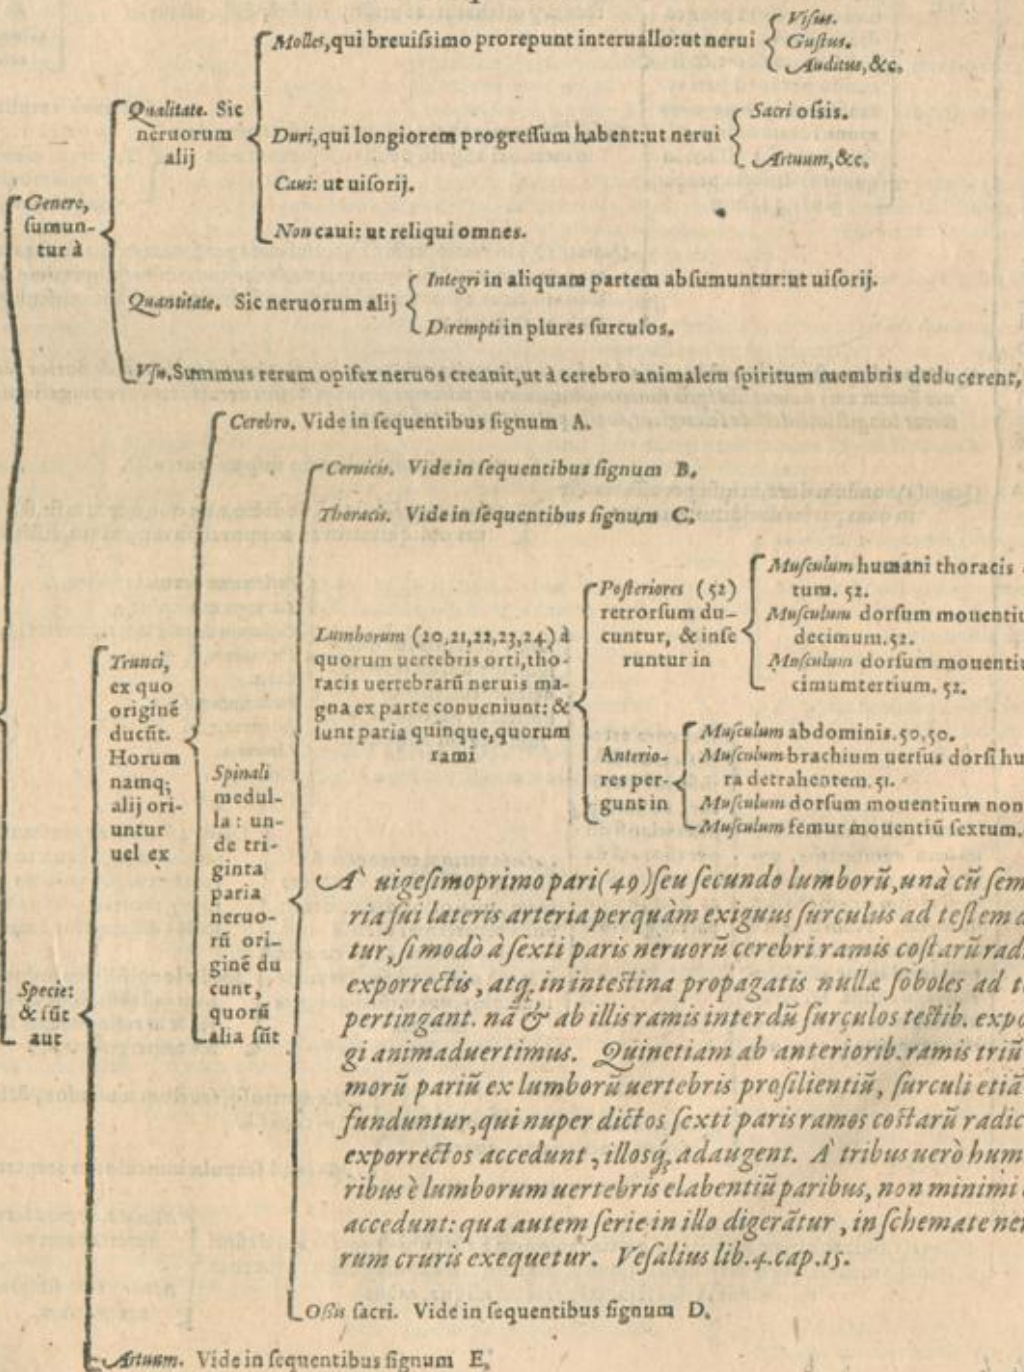 Molles, qui breuiſsimo prorepunt interuallo: ut nerui
Viſus.
Guſtus.
Auditus, &c.
Qualitate. Sic
neruorum
alij
Duri, qui longiorem progreſſum habent: ut nerui
Sacri oſsis.
Artuum, &c.
Caui: ut uiſorij.
Non caui: ut reliqui omnes.
Genere,
ſumun-
tur à
Quantitate. Sic neruorum alij
Integri in aliquam partem abſumuntur: ut uiſorij.
Dirempti in plures ſurculos.
Vſu. Summus rerum opifex neruos creauit, ut à cerebro animalem ſpiritum membris deducerent,
Cerebro. Vide in ſequentibus ſignum A.
Ceruicis. Vide in ſequentibus ſignum B.
Thoracis. Vide in ſequentibus ſignum C.
Trunci,
ex quo
originẽ
ducũt.
Horum
namq;
alij ori-
untur
uel ex
Spinali
medul-
la: un-
de tri-
ginta
paria
neruo-
rũ ori-
ginẽ du
cunt,
quorũ
alia ſũt
Lumborum (20,21,22,23,24) à
quorum uertebris orti, tho-
racis uertebrarũ neruis ma-
gna ex parte conueniunt: &
ſunt paria quinque, quorum
rami
Poſteriores (52)
retrorſum du-
cuntur, & inſe
runtur in
Muſculum humani thoracis
tum. 52.
Muſculum dorſum mouentiu
decimum. 52.
Muſculum dorſum mouentiu
cimumtertium. 52.
Anterio-
res per-
gunt in
Muſculum abdominis. 50, 50.
Muſculum brachium uerſus dorſi hu
ra detrahentem. 51.
Muſculum dorſum mouentium non
Muſculum femur mouentiũ ſextum.
A' uigeſimoprimo pari (49) ſeu ſecundo lumborũ, unà cũ ſem
ria ſui lateris arteria perquàm exiguus ſurculus ad teſtem
tur, ſi modò à ſexti paris neruorũ cerebri ramis coſtarũ rad
exporrectis, atq; in inteſtina propagatis nullæ ſoboles ad t
pertingant. nã & ab illis ramis interdũ ſurculos teſtib. expo
gi animaduertimus. Quinetiam ab anteriorib. ramis triũ
morũ pariũ ex lumborũ uertebris proſilientiũ, ſurculi etiã
funduntur, qui nuper dictos ſexti paris ramos coſtarũ radic
exporrectos accedunt, illosq́; adaugent. A' tribus uerò hum
ribus è lumborum uertebris elabentiũ paribus, non minimi
accedunt: qua autem ſerie in illo digerãtur, in ſchemate ne
rum cruris exequetur. Veſalius lib. 4. cap. 15.
Oſsis ſacri. Vide in ſequentibus ſignum D.
Specie:
& ſũt
aut
Artuum. Vide in ſequentibus ſignum E.